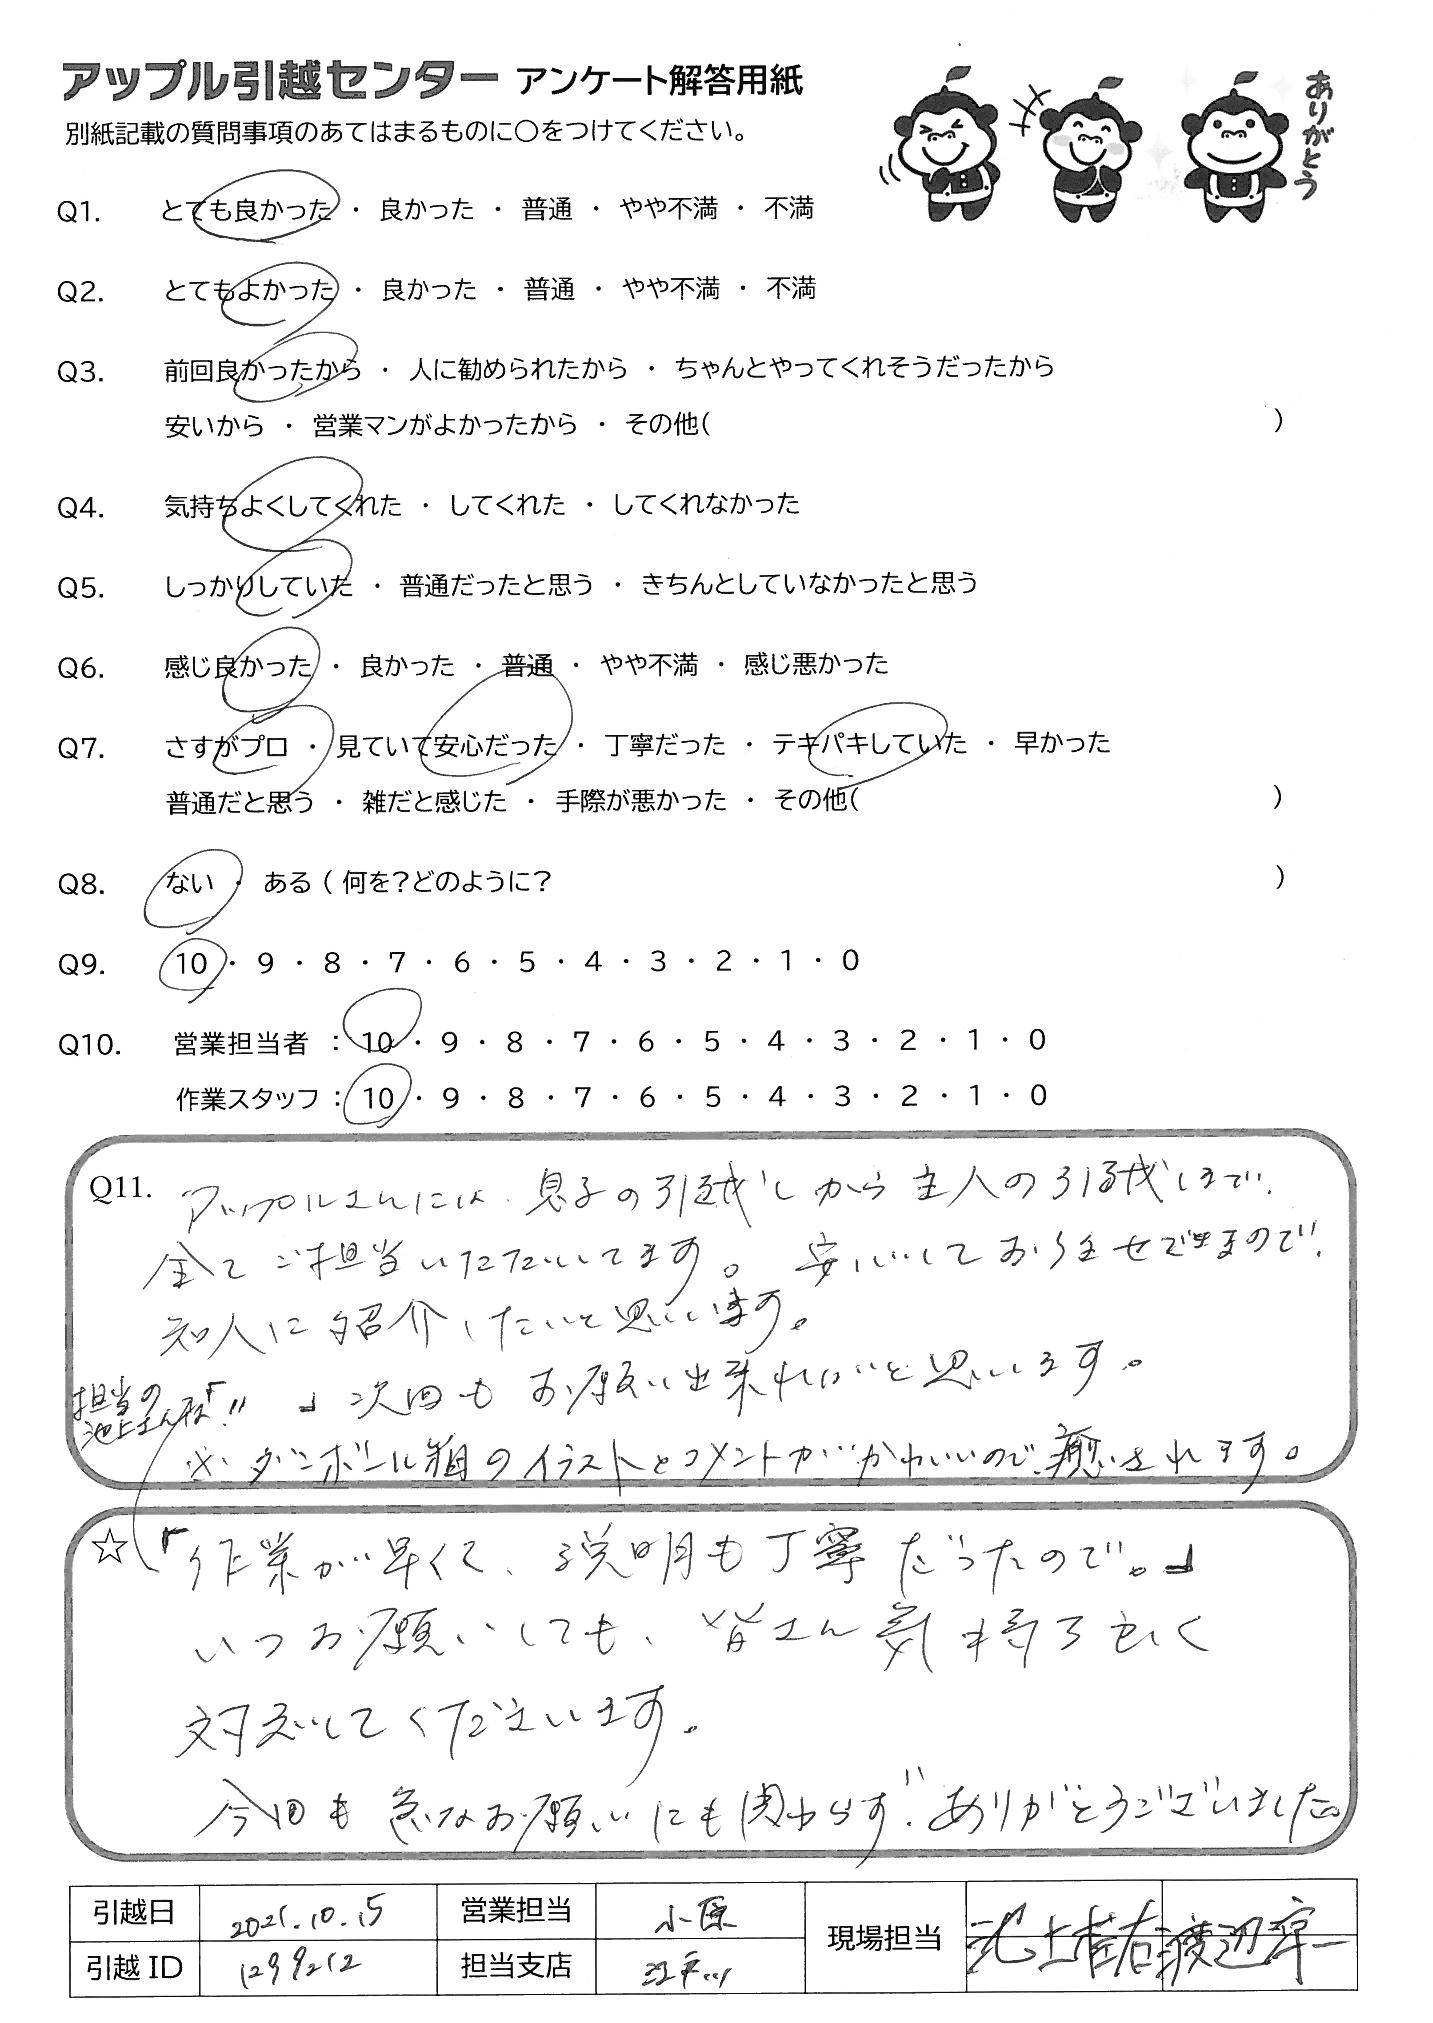 アップル引越センター アンケート解答用紙
ありがとう
別紙記載の質問事項のあてはまるものに〇をつけてください。
Q1. とても良かった ・ 良かった ・ 普通 ・ やや不満 ・ 不満
Q2. とてもよかった ・ 良かった ・ 普通 ・ やや不満 ・ 不満
Q3. 前回良かったから ・ 人に勧められたから ・ ちゃんとやってくれそうだったから
安いから ・ 営業マンがよかったから ・ その他( )
Q4. 気持ちよくしてくれた ・ してくれた ・ してくれなかった
Q5. しっかりしていた ・ 普通だったと思う ・ きちんとしていなかったと思う
Q6. 感じ良かった ・ 良かった ・ 普通 ・ やや不満 ・ 感じ悪かった
Q7. さすがプロ ・ 見ていて安心だった ・ 丁寧だった ・ テキパキしていた ・ 早かった
普通だと思う ・ 雑だと感じた ・ 手際が悪かった ・ その他( )
Q8. ない ・ ある ( 何を?どのように? )
Q9. 10 ・ 9 ・ 8 ・ 7 ・ 6 ・ 5 ・ 4 ・ 3 ・ 2 ・ 1 ・ 0
Q10. 営業担当者 : 10 ・ 9 ・ 8 ・ 7 ・ 6 ・ 5 ・ 4 ・ 3 ・ 2 ・ 1 ・ 0
作業スタッフ : 10 ・ 9 ・ 8 ・ 7 ・ 6 ・ 5 ・ 4 ・ 3 ・ 2 ・ 1 ・ 0
Q11. アップルさんには、息子の引越しから主人の引越しまで、
全てご担当いただいてます。安心しておまかせできますので、
知人に紹介したいと思います。
担当の
池上さんが「!!」次回もお願い出来ればいいと思います。
※ダンボール箱のイラストとコメントがかわいいので、癒されます。
☆「作業が早くて、説明も丁寧だったので。」
いつお願いしても、皆さん気持ち良く
対応してくださいます。
今回も急なお願いにも関わらず"ありがとうございました。
引越日 2021.10.15 営業担当 小原 現場担当 池上 渡辺淳一
引越ID 1299212 担当支店 江戸川